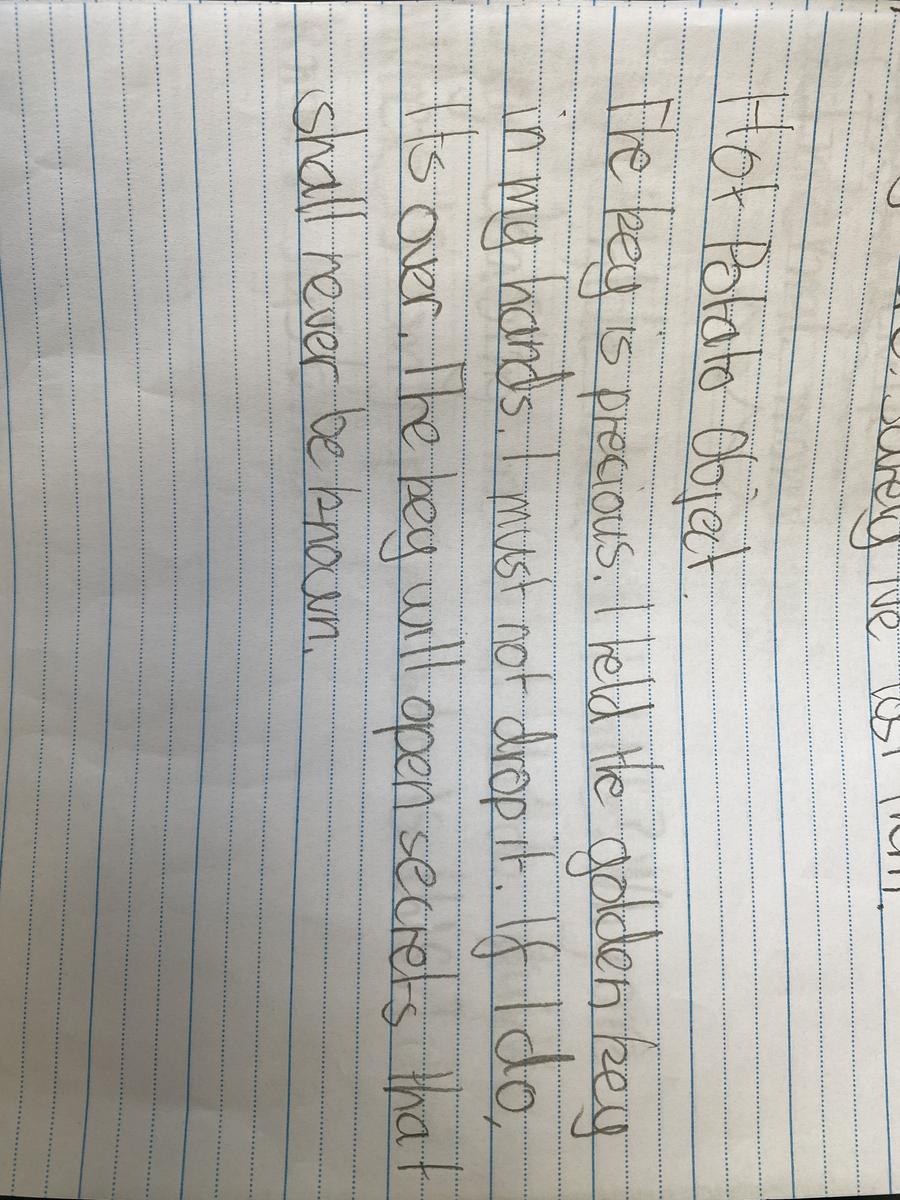 surely I've lost them.
Hot Potato Object.
The key is precious. I held the golden key
in my hands. I must not drop it. If I do,
Its over. The key will open secrets that
shall never be known.